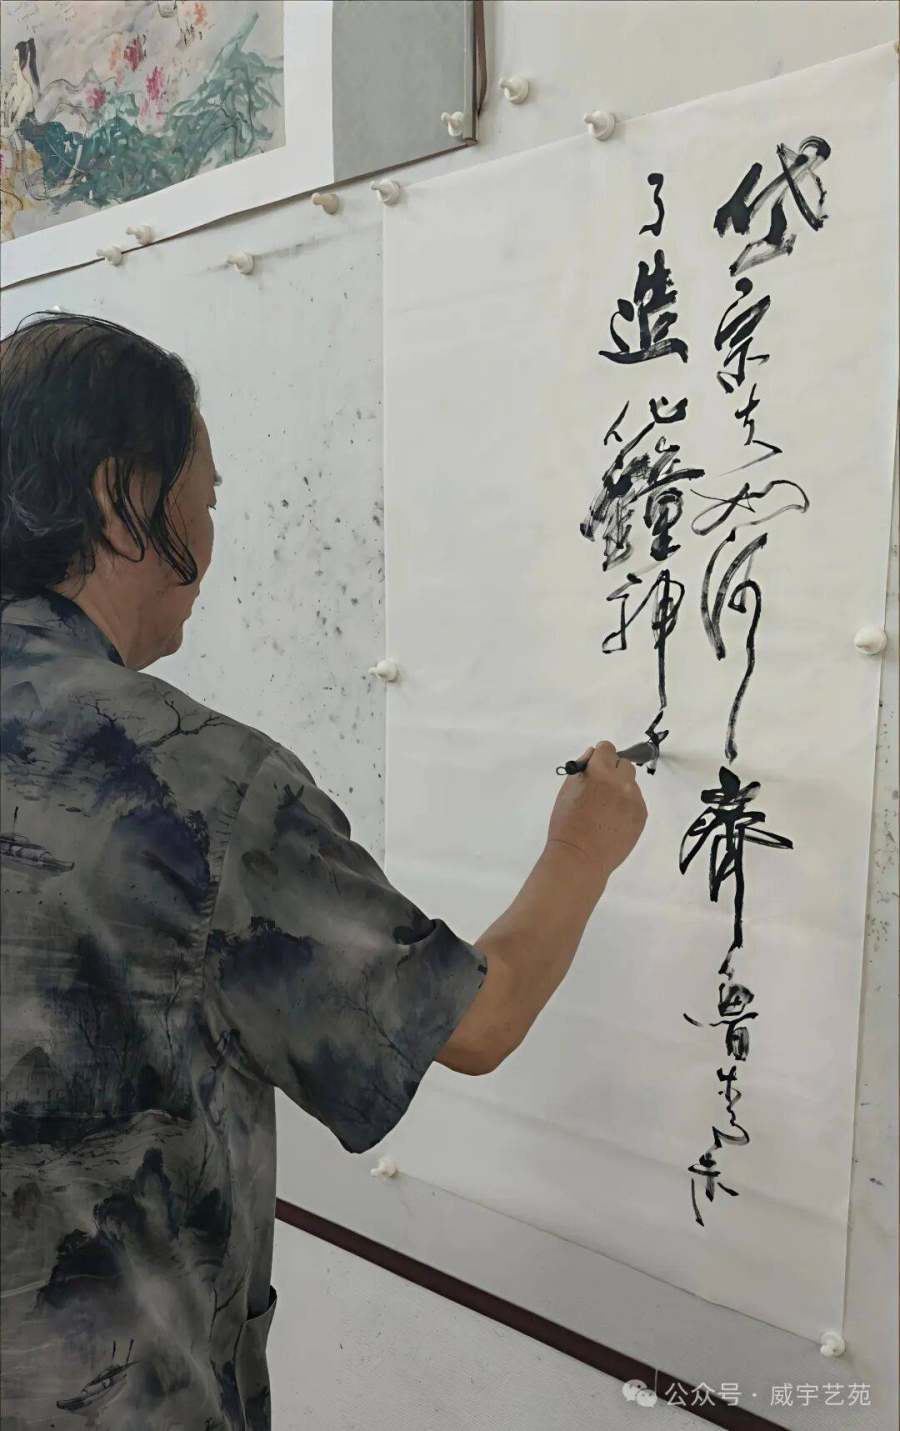 岱宗夫如何齊魯青未
了造化鐘神
公众号 · 威宇艺苑